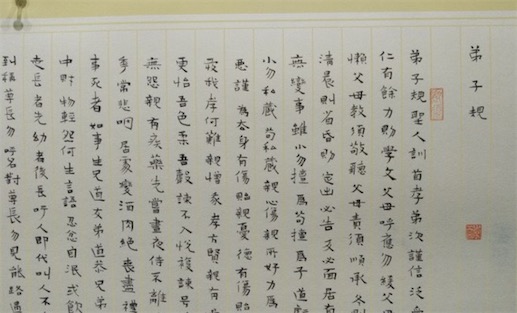 弟子規
弟子規聖人訓首孝弟次謹信泛愛
仁有餘力則學文父母呼應勿緩父母
懶父母教須敬聽父母責須順承冬則
清晨則省昏則定出必告反必面居有
無變事雖小勿擅為茍擅為子道
小勿私藏茍私藏親心傷親所好力為
惡謹為去身有傷貽親憂德有傷貽
愛我孝何難親憎我孝方賢親有
更怡吾色柔吾聲諫不入悅復諫號
無怨親有疾藥先嘗晝夜侍不離
年常悲咽居處變酒肉絕喪盡禮
事死者如事生兄道友弟道恭兄弟
中財物輕怨何生言語忍忿自泯或飲
走長者先幼者後長呼人即代叫人不
到稱尊長勿呼名對尊長勿見能路遇